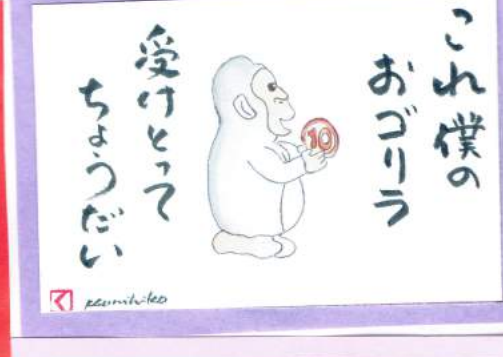 これ僕の
おゴリラ
10
受けとって
ちょうだい
く
Kunihiko